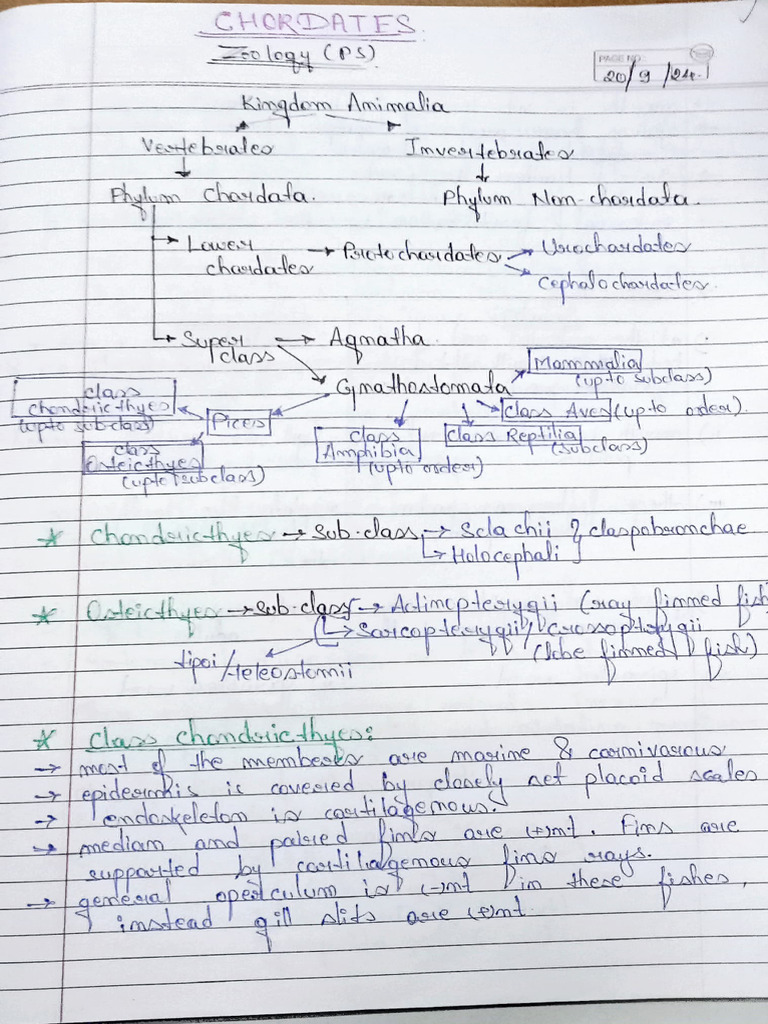 CHORDATES
Zoology (PS)
PAGE NO.
20/9/24.
Kingdom Animalia
Vertebrates
Invertebrates
Phylum Chordata.
Phylum Non-chordata.
→ Lower → Protochordates → Urochordates
chordates
Cephalochordates.
→ Super → Agnatha.
class
Mammalia
(upto subclass)
Gnathostomata
class
Chondricthyes
(upto sub-class)
Pices
Class Aves (upto order).
class
Osteicthyes
(upto subclass)
class
Amphibia
(upto order)
Class Reptilia
(subclass)
* Chondricthyes → Sub-class → Selachii } elaspobranchae
→ Holocephali
* Osteicthyes → Sub-class → Actinopterygii (ray finned fish
→ Sarcopterygii / Crossopterygii
(lobe finned fish)
/teleostomii
* Class chondricthyes:
→ most of the members are marine & carnivorous
→ epidermis is covered by closely set placoid scales
→ endoskeleton is cartilagenous.
→ median and paired fins are (+)nt. Fins are
supported by cartilagenous fins rays.
→ general operculum is (-)nt in these fishes,
instead gill slits are (+)nt.